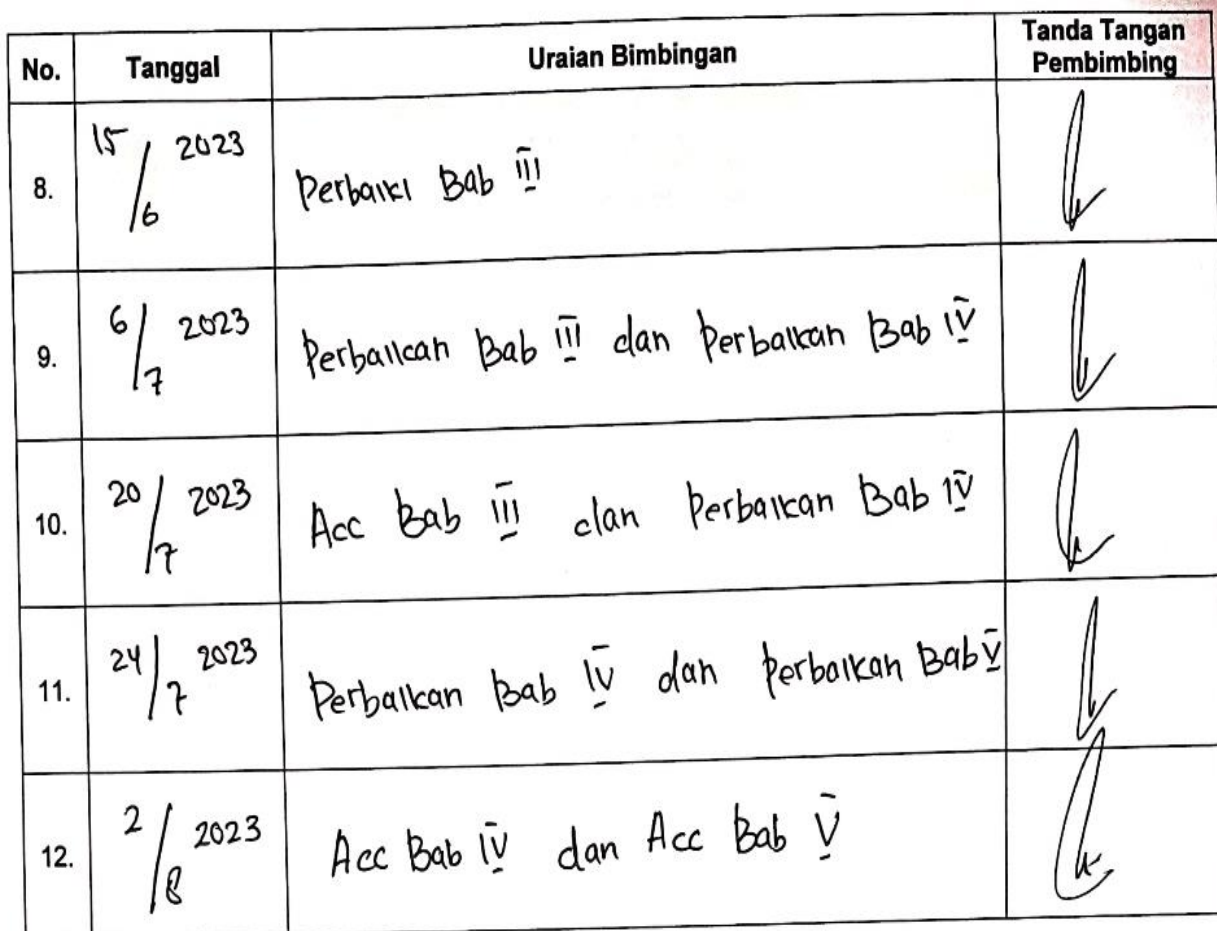 No. Tanggal Uraian Bimbingan Tanda Tangan
Pembimbing
8. 15/6 2023 Perbaiki Bab III
9. 6/7 2023 Perbaikan Bab III dan Perbaikan Bab IV
10. 20/7 2023 Acc Bab III dan Perbaikan Bab IV
11. 24/7 2023 Perbaikan Bab IV dan Perbaikan Bab V
12. 2/8 2023 Acc Bab IV dan Acc Bab V